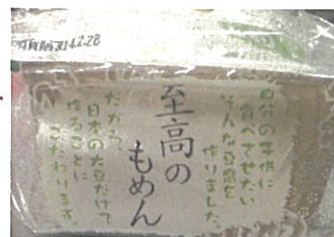 2014.2.28
自分の子供に
食べさせたい
そんな豆腐を
作りました。
至高の
もめん
だから、
日本の大豆だけで
作ることに
こだわります。